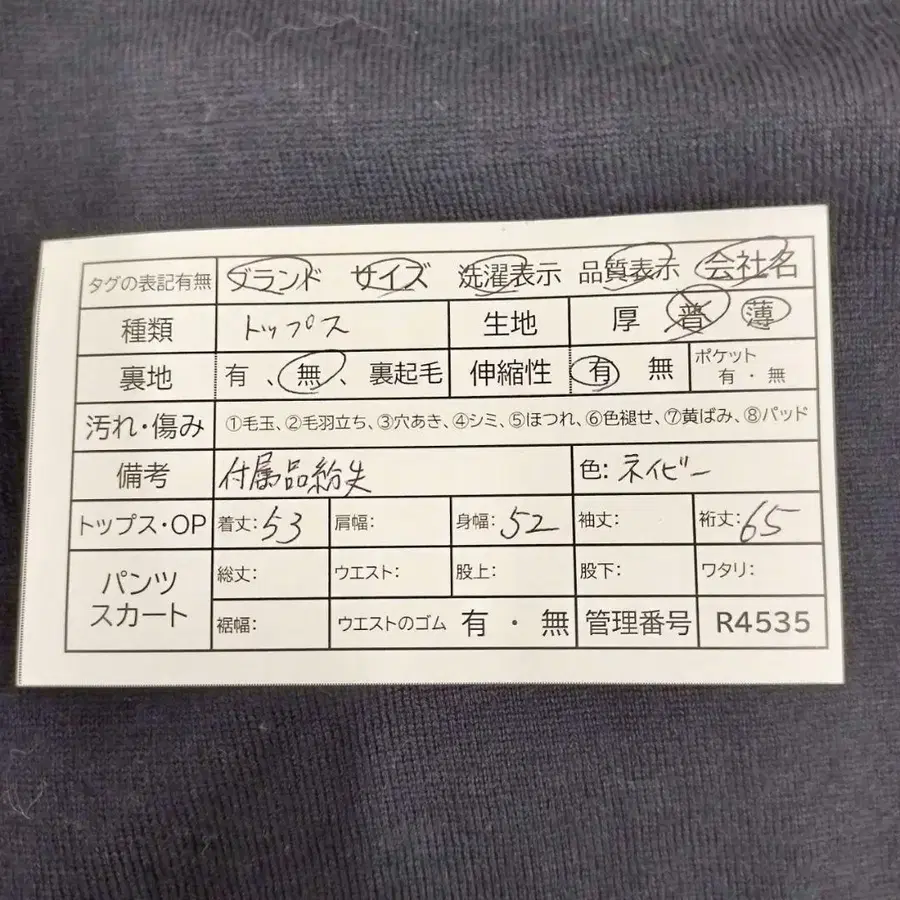 タグの表記有無 ブランド サイズ 洗濯表示 品質表示 会社名
種類 トップス 生地 厚 普 薄
裏地 有、無、裏起毛 伸縮性 有 無 ポケット 有・無
汚れ・傷み ①毛玉、②毛羽立ち、③穴あき、④シミ、⑤ほつれ、⑥色褪せ、⑦黄ばみ、⑧パッド
備考 付属品紛失 色:ネイビー
トップス・OP 着丈:53 肩幅: 身幅:52 袖丈: 裄丈:65
パンツ スカート 総丈: ウエスト: 股上: 股下: ワタリ:
裾幅: ウエストのゴム 有・無 管理番号 R4535